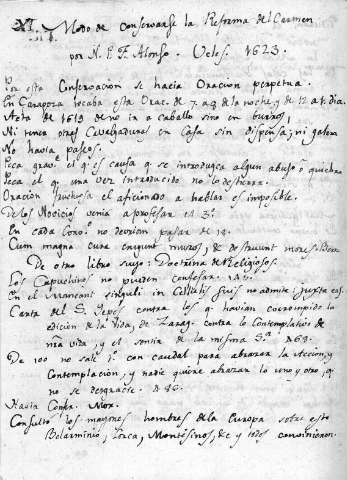 Modo de Conservarse la Reforma del Carmen
por N. P. F. Alonso. Ucles. 1623.
Por esta Conservacion se hacia Oracion perpetua.
En Zaragoza tocaba esta Orac. de 7. a 9. de la noche, y de 12. a 1. dia.
Acta de 1613 de no ir a caballo sino en burros,
Ni tener otras Cavalgaduras en Casa sin dispensa; ni galera
No havia paseos.
Peca grav. el q. es causa q. se introduzca algun abuso o quiebra
Peca el q. una vez introducido no lo destierra.
Oracion el aficionado a hablar es imposible.
De los Novicios venia a profesar el 3º
En cada no devrian pasar de 12.
Cum magna cura erigunt muros, & destruunt mores
De otro libro suyo: Doctrina de Religiosos.
Los Capuchinos no pueden confesar.
En el singuli in Cellulis suis no admite juxta eas.
Carta del S. contra los q. havian corrompido la
edicion de la Vida, de Zarag. contra lo Contemplativo de
nra vida, y el sentir de la misma Sta
De 100 no sale 1º con caudal para abrazar la accion, y
Contemplacion, y nadie quiere abrazar lo uno y otro, q.
no se desgracie.
Hasta
Consultó los mayores hombres de la Europa sobre esto
Belarminio, Lorca, Montesinos, &c y todos convinieron.